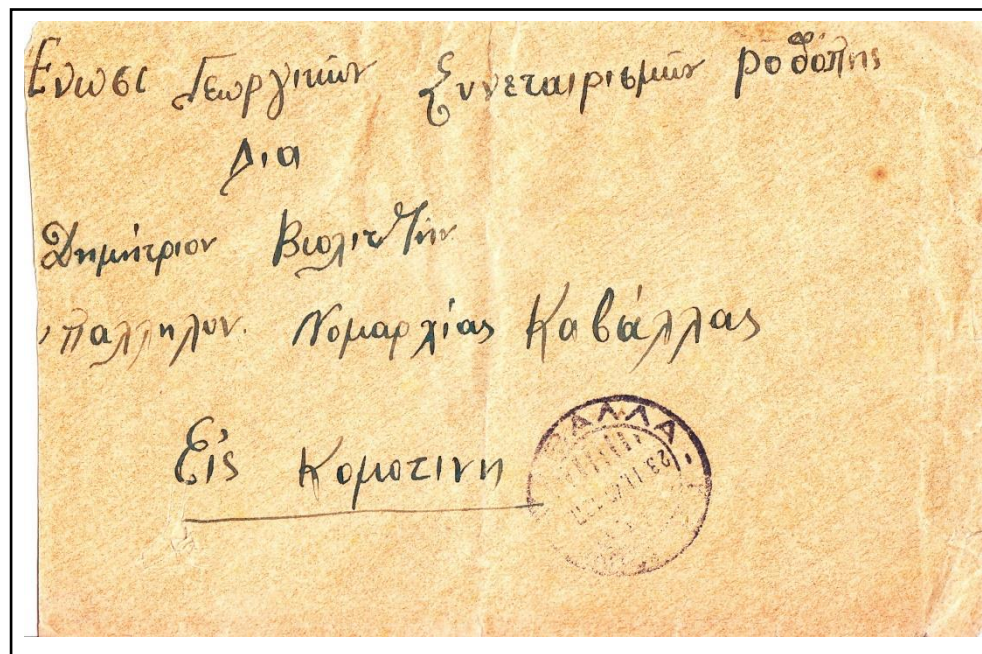 Ενωσι Γεωργικών Συνεταιρισμών Ροδόπης
Δια
Δημήτριον
υπαλληλον. Νομαρχίας Καβάλλας
Είς Κομοτινη
ΒΑΛΛΑ
23